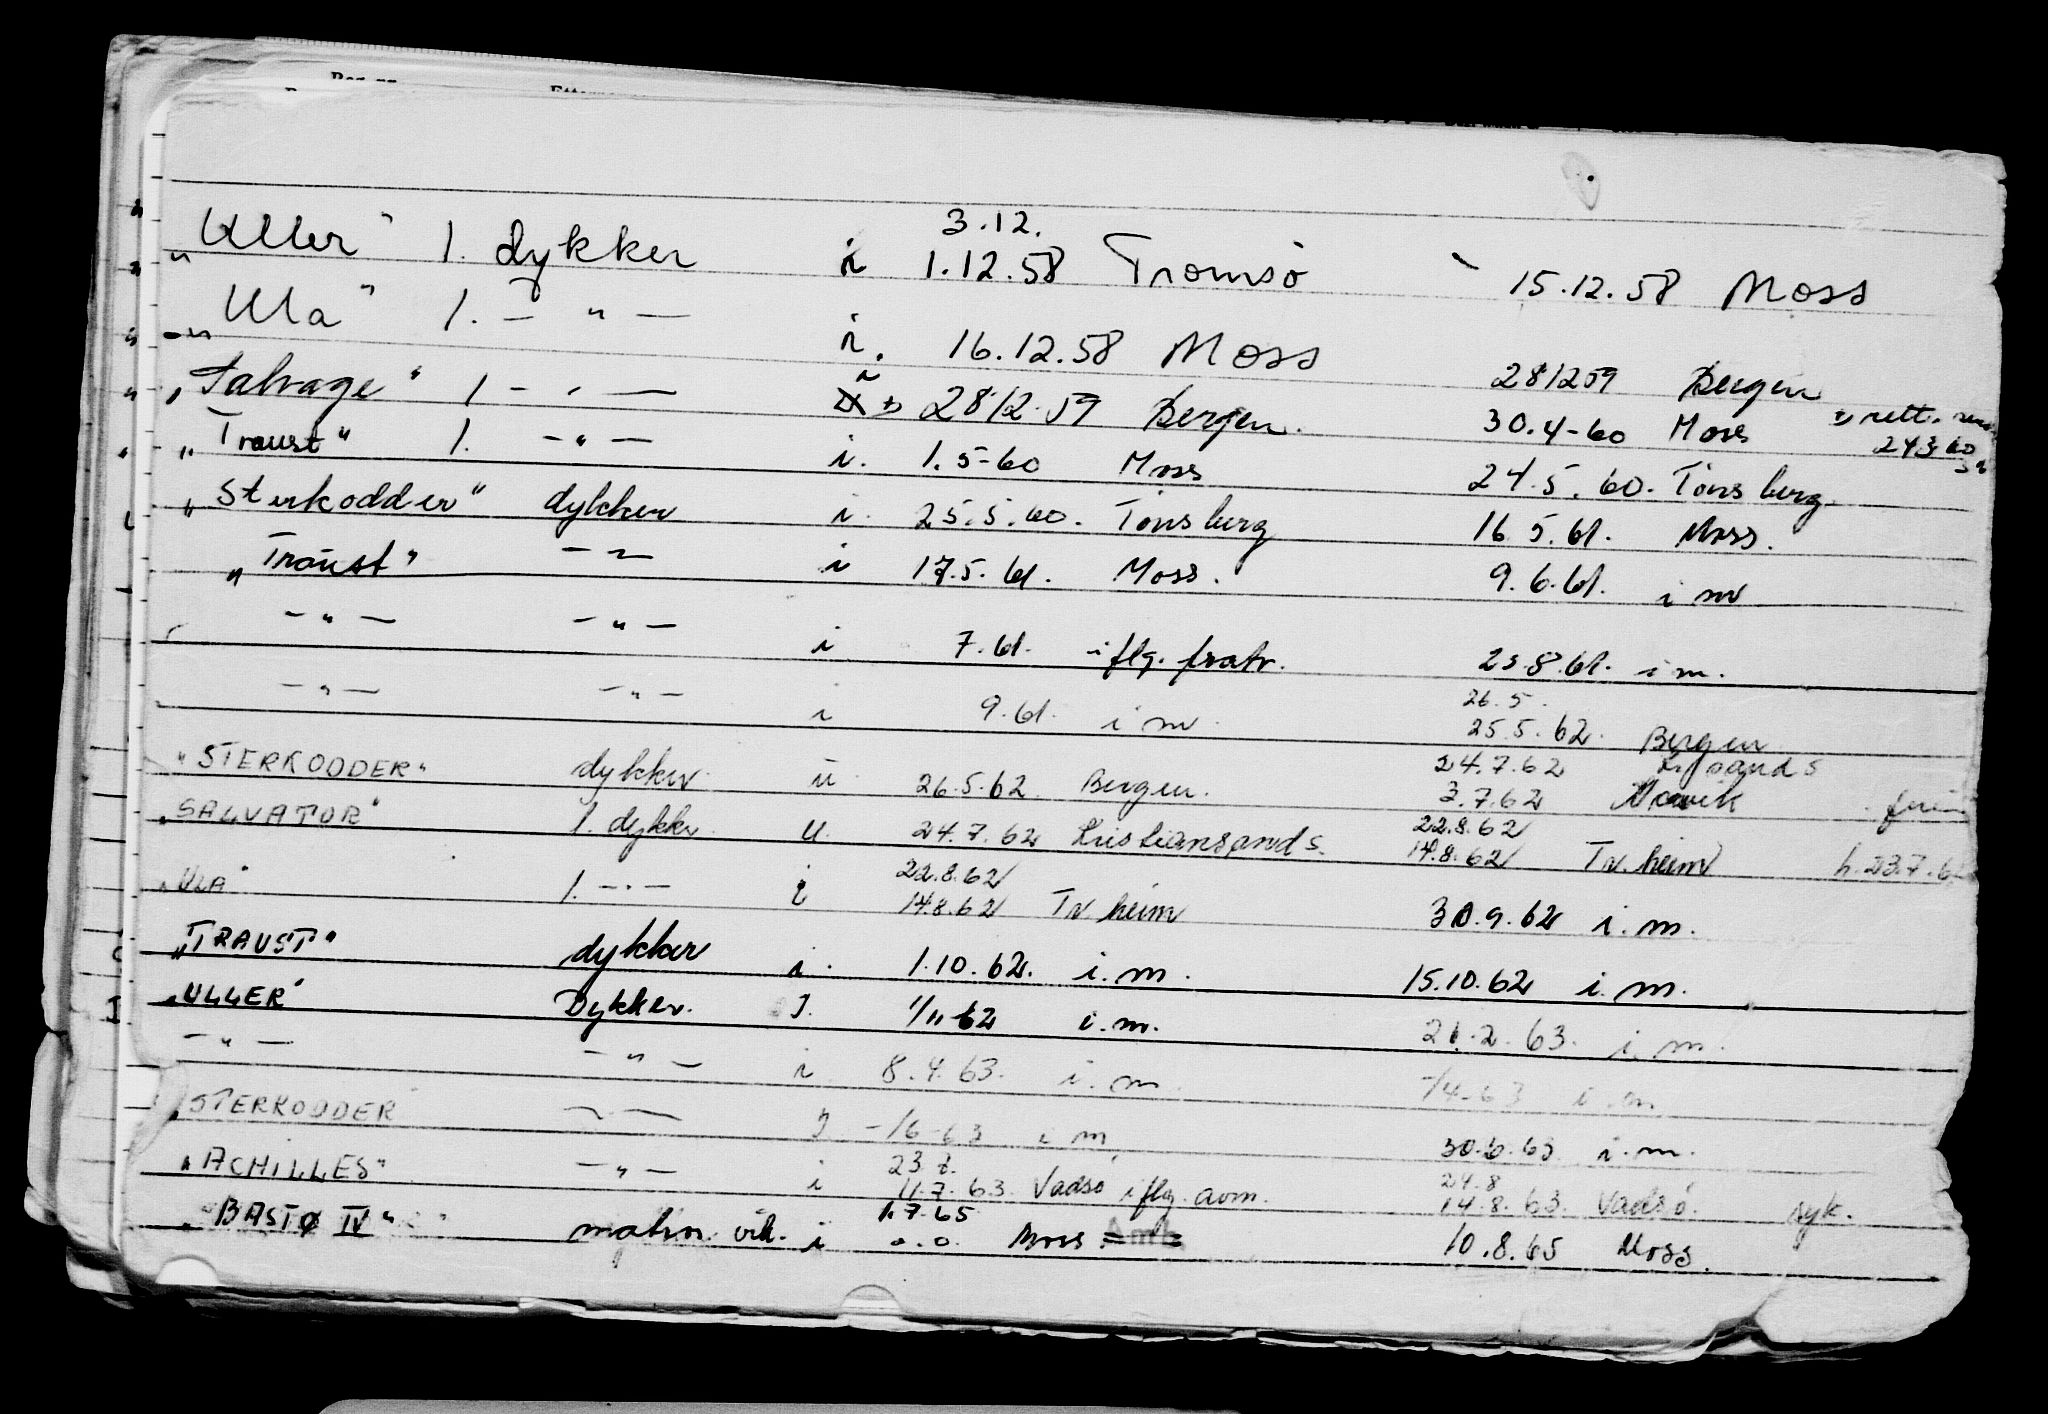 3.12.
"Uller" 1. dykker i 1.12.58 Tromsö 15.12.58 Moss
"Ula" 1. — " — i. 16.12.58 Moss 281259 Bergen
"Salvage" 1 — " — i 2812.59 Bergen. 30.4-60 Moss rett.
"Traust" 1. — " — i. 1.5-60 Moss 24.5.60. Tönsberg 243.60
"Sterkodder" dykker i. 25.5.60. Tönsberg 16.5.61. Moss.
"Traust" — " — i 17.5.61. Moss. 9.6.61. i m
— " — — " — i 7.61. iflg. fratr. 23.8.61. i m.
26.5.
— " — — " — i 9.61. i m. 25.5.62. Bergen
24.7.62 Kr.sand S
"STERKODDER" dykker ü. 26.5.62. Bergen. 3.7.62
22.8.62
"SALVATOR" 1. dykker u. 24.7.62 Kristiansand S. 14.8.62 Tr.heim h. 23.7.62
22.8.62
"ULA" 1. — " — i 14.8.62 Tr.heim 30.9.62 i.m.
"TRAUST" dykker i. 1.10.62. i.m. 15.10.62 i.m.
"ULLER" Dykker. I. 1/11-62 i.m. 21.2.63. i.m.
— " — — " — i 8.4.63. i.m. -/4-63 i.m.
"STERKODDER" — " — I -/6-63 i m 30.6.63 i.m.
23.7. 24.8
"ACHILLES" — " — i 11.7.63. Vadsö iflg. avm. 14.8.63. Vadsö. syk.
1.7.65
"BASTØ IV" matros vik. i o.o. Moss 10.8.65 Moss.